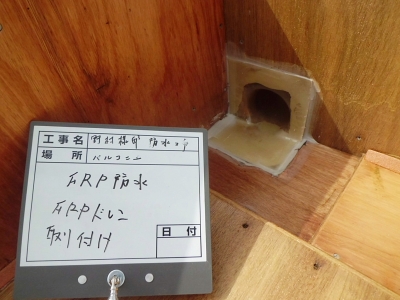 工事名 野村様邸 防水工事
場所 バルコニー
FRP防水
FRPドレン
取り付け
日付